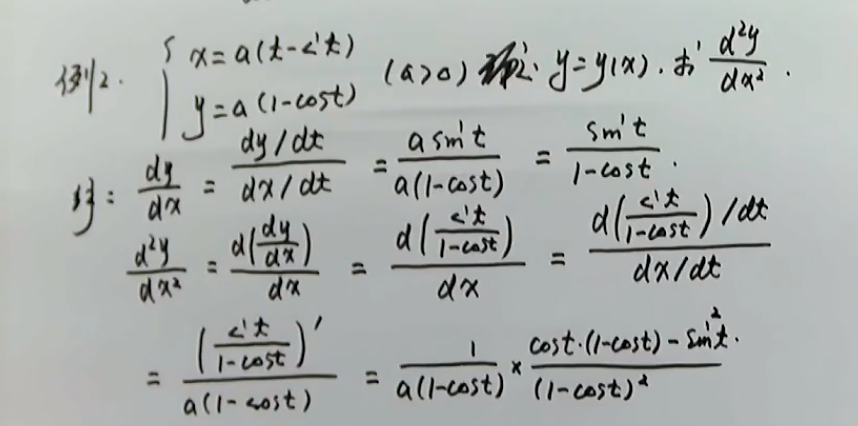 例2. { x=a(t-sin t)
y=a(1-cost) (a>0) 确定 y=y(x). 求 d²y/dx².
解: dy/dx = (dy/dt)/(dx/dt) = (a sin t)/(a(1-cost)) = (sin t)/(1-cost).
d²y/dx² = d(dy/dx)/dx = d(sin t/(1-cost))/dx = (d(sin t/(1-cost))/dt)/(dx/dt)
= (sin t/(1-cost))'/(a(1-cost)) = 1/(a(1-cost)) × (cost·(1-cost)-sin²t.)/(1-cost)²